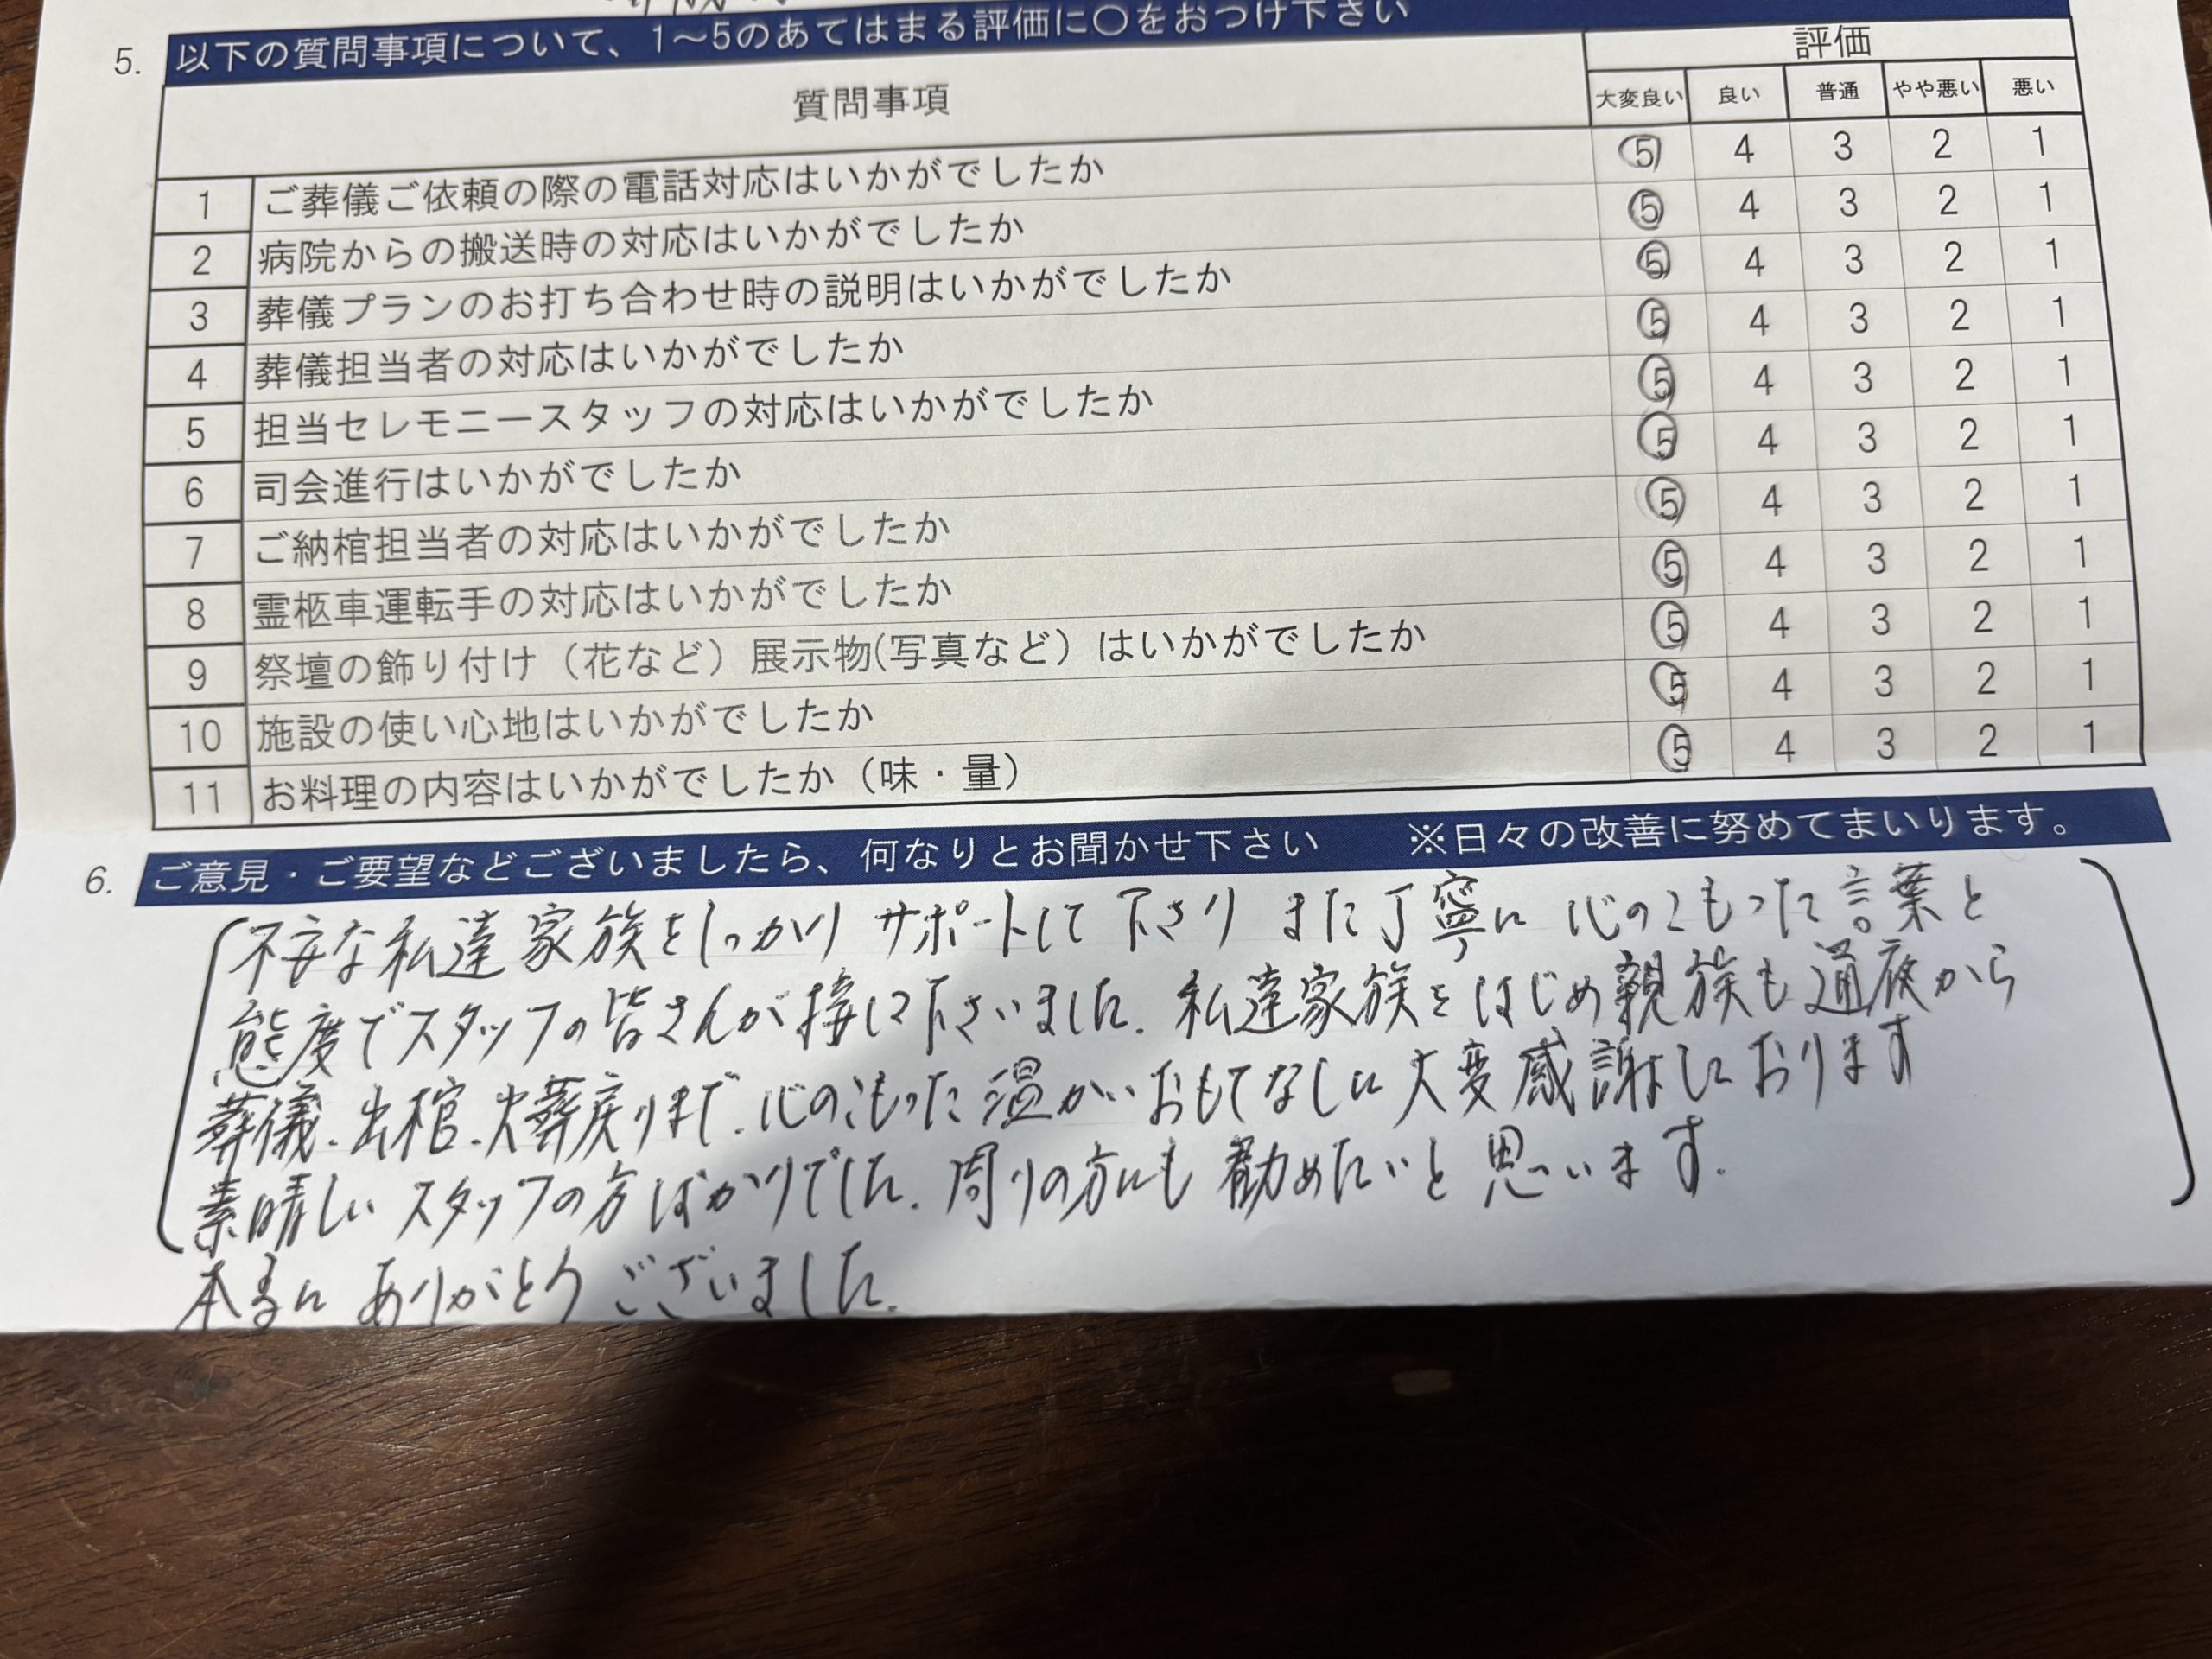 5. 以下の質問事項について、1～5のあてはまる評価に〇をおつけ下さい
質問事項 評価
大変良い 良い 普通 やや悪い 悪い
1 ご葬儀ご依頼の際の電話対応はいかがでしたか 5 4 3 2 1
2 病院からの搬送時の対応はいかがでしたか 5 4 3 2 1
3 葬儀プランのお打ち合わせ時の説明はいかがでしたか 5 4 3 2 1
4 葬儀担当者の対応はいかがでしたか 5 4 3 2 1
5 担当セレモニースタッフの対応はいかがでしたか 5 4 3 2 1
6 司会進行はいかがでしたか 5 4 3 2 1
7 ご納棺担当者の対応はいかがでしたか 5 4 3 2 1
8 霊柩車運転手の対応はいかがでしたか 5 4 3 2 1
9 祭壇の飾り付け（花など）展示物(写真など）はいかがでしたか 5 4 3 2 1
10 施設の使い心地はいかがでしたか 5 4 3 2 1
11 お料理の内容はいかがでしたか（味・量） 5 4 3 2 1
6. ご意見・ご要望などございましたら、何なりとお聞かせ下さい ※日々の改善に努めてまいります。
不安な私達家族をしっかりサポートして下さり また丁寧に 心のこもった言葉と
態度でスタッフの皆さんが接して下さいました. 私達家族をはじめ親族も通夜から
葬儀、出棺、火葬戻りまで、心のこもった温かいおもてなしに大変感謝しております
素晴しいスタッフの方ばかりでした. 周りの方にも勧めたいと思います.
本当に ありがとうございました.